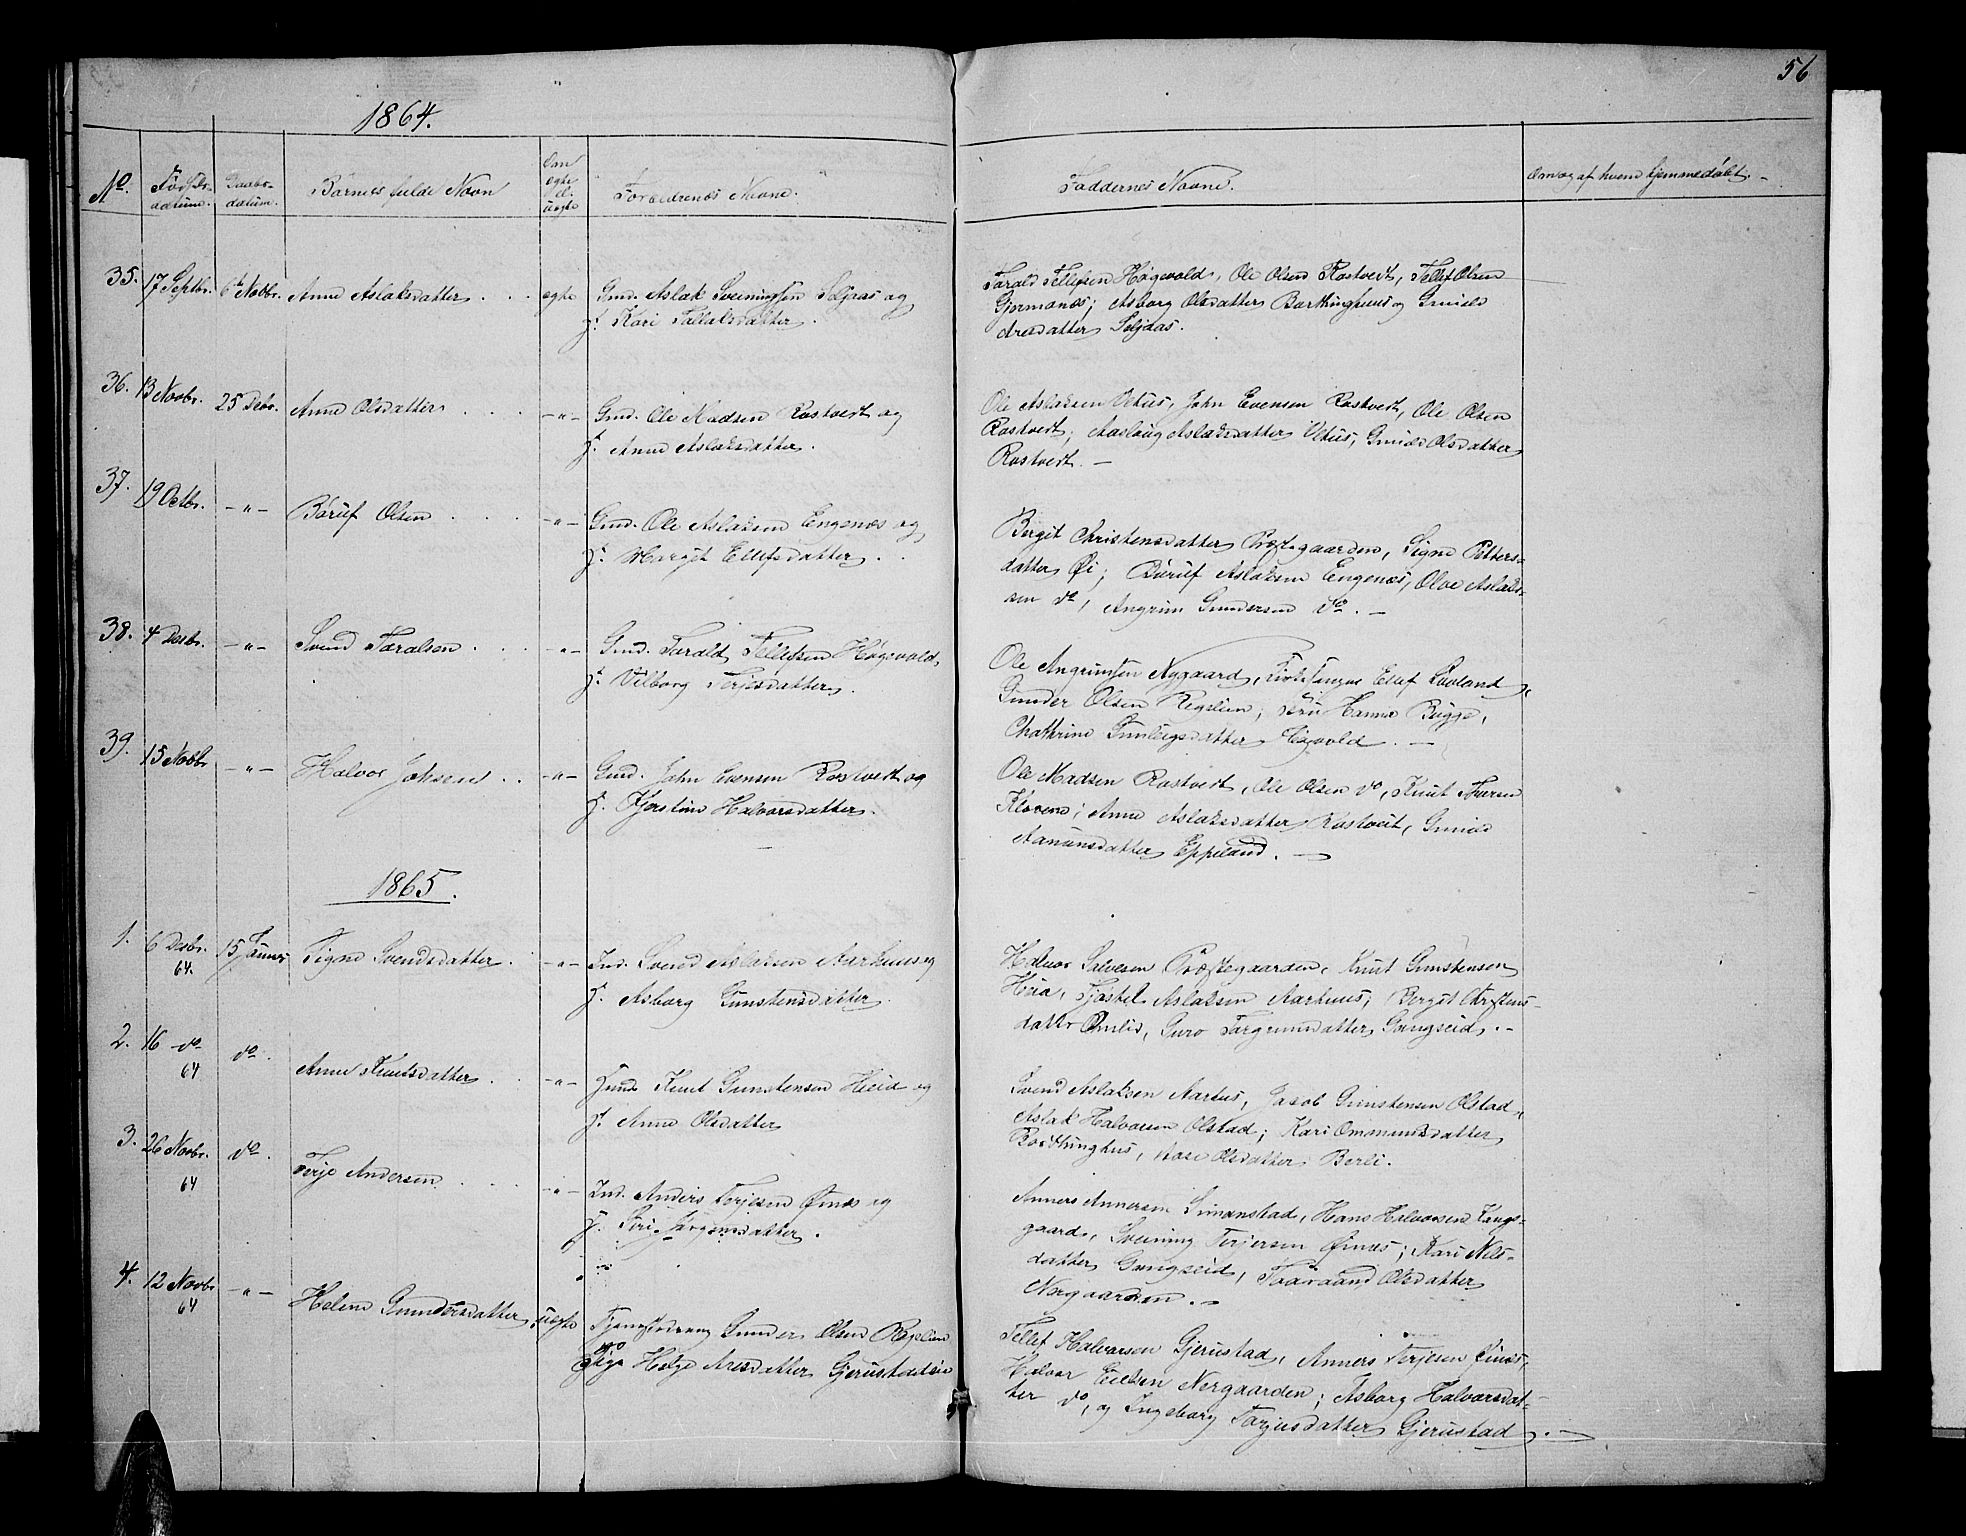 56
1864.
No. Fødsels- Daabs- Barnets fulde Navn Om ægte Forældrenes Navne. Faddernes Navne. Om og af hvem hjemmedøbt.
datum. datum. el. uægte
35. 17 Septbr. 6te Novbr. Anne Aslaksdatter ægte Gmd. Aslak Sveinungsen Seljaas og
k. Kari Tallaksdatter.
Tarald Tellefsen Høgevold, Ole Olsen Rostveit, Tellef Olsen
Gjermanæs; Asborg Olsdatter Barthinghuus og Gunild
Aresdatter Seljaas.
36. 13 Novbr. 25 Debr. Anne Olsdatter -"- Gmd. Ole Madsen Rostveit og
k. Anne Aslaksdatter.
Ole Aslaksen Vehus, John Evensen Rostveit, Ole Olsen
Rostveit; Aaslaug Aslaksdatter Vehus, Gunild Olsdatter
Rostveit. -
37. 19 Octbr. -"- Børuf Olsen -"- Gmd. Ole Aslaksen Engenæs og
k. Margit Ellefsdatter.
Bergit Christensdatter Præstegaarden, Signe Petters-
datter Øi; Børuf Aslaksen Engenæs, Olve Aslaks-
sen do, Angrim Gundersen do. -
38. 4 Decbr. -"- Svend Taralsen -"- Gmd. Tarald Tellefsen Høgevold,
k. Vilborg Terjesdatter.
Ole Angrimsen Nygaard, Ellef Lauland,
Gunder Olsen Regelien; Hanna Bugge,
Chathrine Gunleigsdatter Høgvold. -
39. 15 Novbr -"- Halvor Johnsen -"- Gmd. John Evensen Rostveit og
k. Kjerstine Halvorsdatter.
Ole Madsen Rostveit, Ole Olsen do, Knut Iversen
Klovene; Anne Aslaksdatter Rostveit, Gunild
Aanunsdatter Eppeland. -
1865.
1. 6 Decbr. 64. 15 Januar Signe Svendsdatter -"- Ind. Svend Aslaksen Aarhuus og
k. Asborg Gunstensdatter.
Halvor Salvesen Præstegaarden, Knut Gunstensen
Heia, Tjøstel Aslaksen Aarhuus; Bergit Christens-
datter Omlid, Guro Torgrimsdatter Gangseid. -
2. 16 do 64 do. Anne Knutsdatter -"- Knut Gunstensen Heia og
k. Anne Olsdatter
Svend Aslaksen Aarhus, Jacob Gunstensen Olstad,
Aslak Halvorsen Olstad; Kari Ommundsdatter
Barthinghus, Aase Olsdatter Berli.
3. 26 Novbr. 64 do. Terje Andersen -"- Ind. Anders Terjesen Øinæs og
k. Siri Jørgensdatter.
Anners Annersen Simonstad, Hans Halvorsen Kongs-
gaard, Sveining Terjersen Øinæs; Kari Nils-
datter Gangseid, Taaraand Olsdatter
Nergaarden. -
4. 12 Novbr 64 -"- Helene Gundersdatter uægte Tjenestedreng Gunder Olsen Regelien
og Pige Helge Aresdatter Gjerustadlien
Tellef Halvorsen Gjerustad, Anners Terjesen Øinæs,
Halvor Eielsen Nergaarden; Asborg Halvorsdat-
ter do, og Ingeborg Tarjusdatter Gjerustad. -